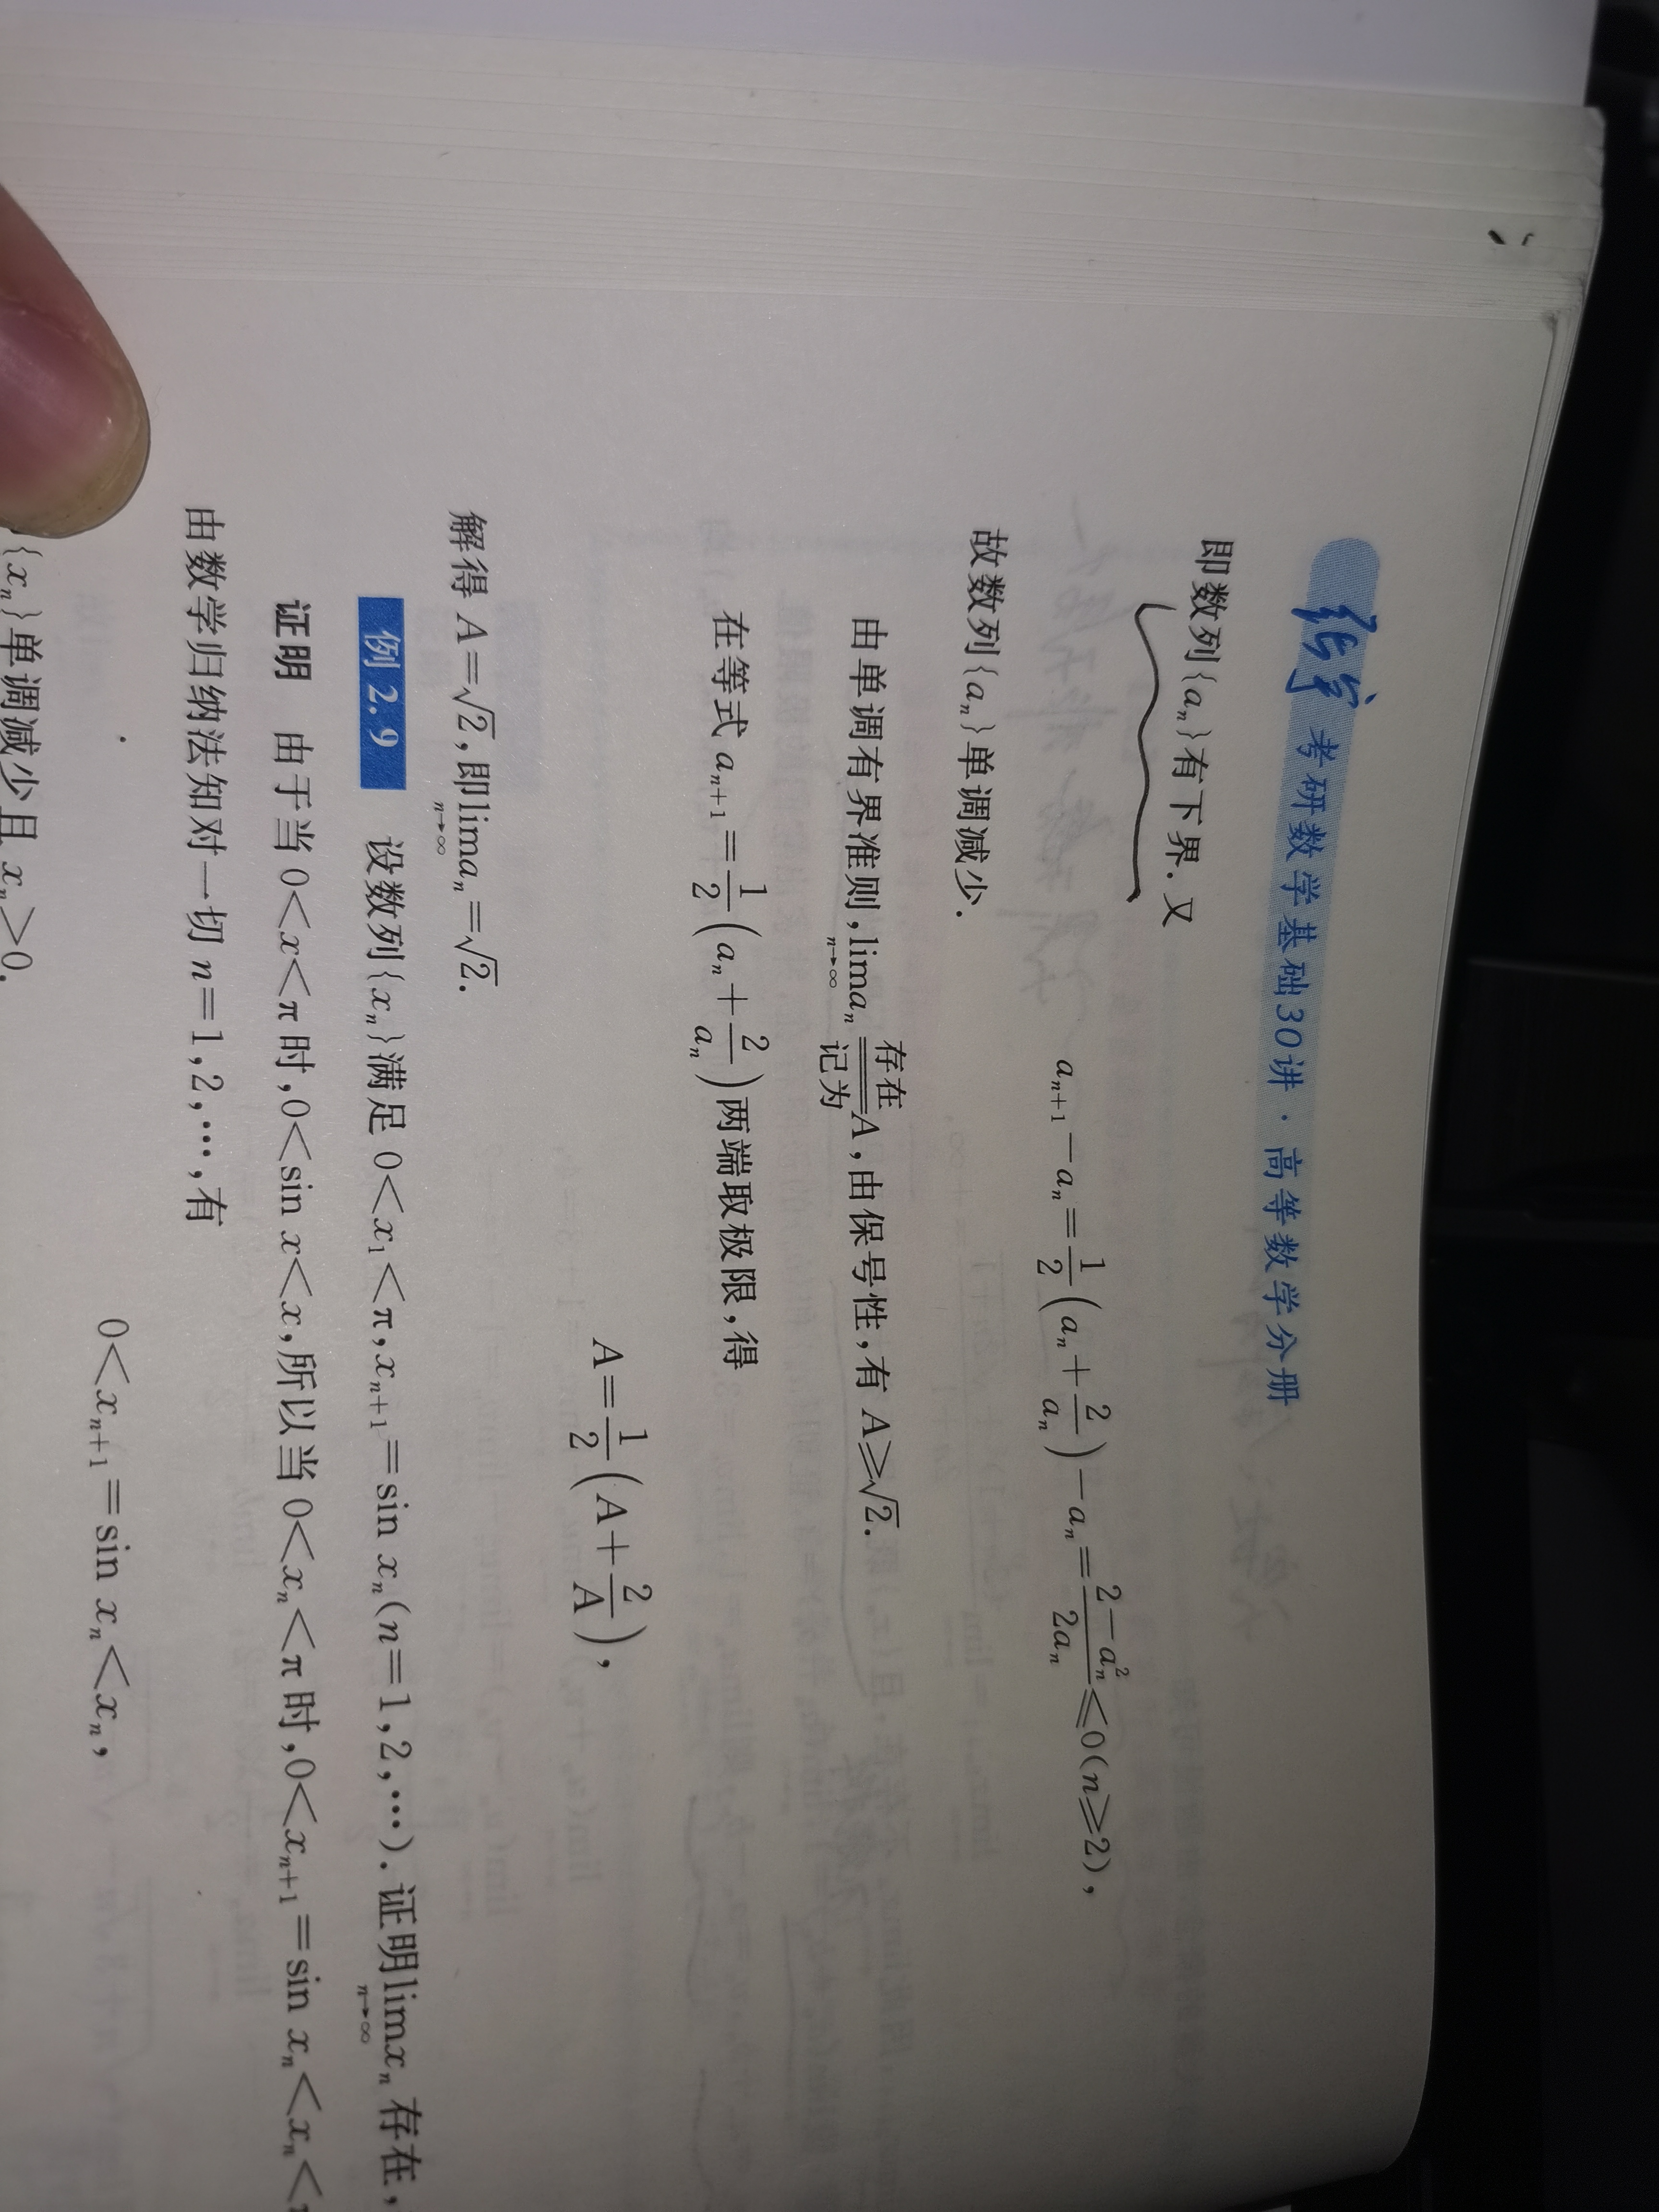 张宇 考研数学基础30讲·高等数学分册
即数列{aₙ}有下界.又
aₙ₊₁−aₙ=1/2(aₙ+2/aₙ)−aₙ=(2−aₙ²)/(2aₙ)≤0(n≥2),
故数列{aₙ}单调减少.
由单调有界准则,lim(n→∞)aₙ =(存在/记为)= A,由保号性,有 A≥√2.
在等式 aₙ₊₁=1/2(aₙ+2/aₙ)两端取极限,得
A=1/2(A+2/A),
解得 A=√2,即lim(n→∞)aₙ=√2.
例 2.9 设数列{xₙ}满足 0<x₁<π,xₙ₊₁=sin xₙ(n=1,2,…).证明lim(n→∞)xₙ 存在,
证明 由于当 0<x<π 时,0<sin x<x,所以当 0<xₙ<π 时,0<xₙ₊₁=sin xₙ<xₙ<
由数学归纳法知对一切 n=1,2,…,有
0<xₙ₊₁=sin xₙ<xₙ,
{xₙ}单调减少且 xₙ>0.